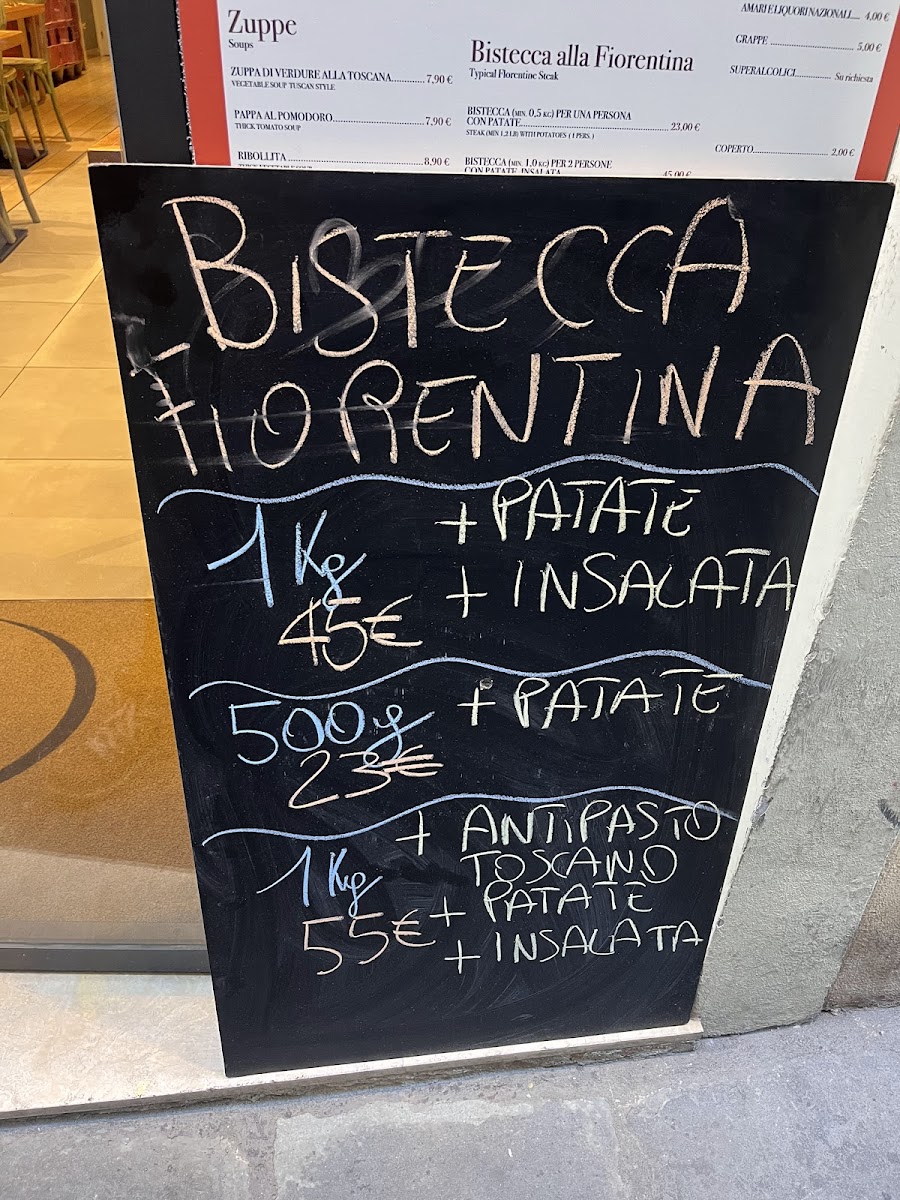 Zuppe
Soups
ZUPPA DI VERDURE ALLA TOSCANA............7,90 €
VEGETABLE SOUP TUSCAN STYLE
PAPPA AL POMODORO..............................7,90 €
THICK TOMATO SOUP
RIBOLLITA..............................................8,90 €
Bistecca alla Fiorentina
Typical Florentine Steak
BISTECCA (MIN. 0,5 KG) PER UNA PERSONA
CON PATATE..................................................23,00 €
STEAK (MIN 1,2 LB) WITH POTATOES (1 PERS.)
BISTECCA (MIN. 1,0 KG) PER 2 PERSONE
CON PATATE, INSALATA..................................45,00 €
AMARI E LIQUORI NAZIONALI.... 4,00 €
GRAPPE............................ 5,00 €
SUPERALCOLICI.................... Su richiesta
COPERTO............................ 2,00 €
BISTECCA
FIORENTINA
1 Kg + PATATE
+ INSALATA
45€
500g + PATATE
23€
+ ANTIPASTO
TOSCANO
1 Kg + PATATE
55€ + INSALATA